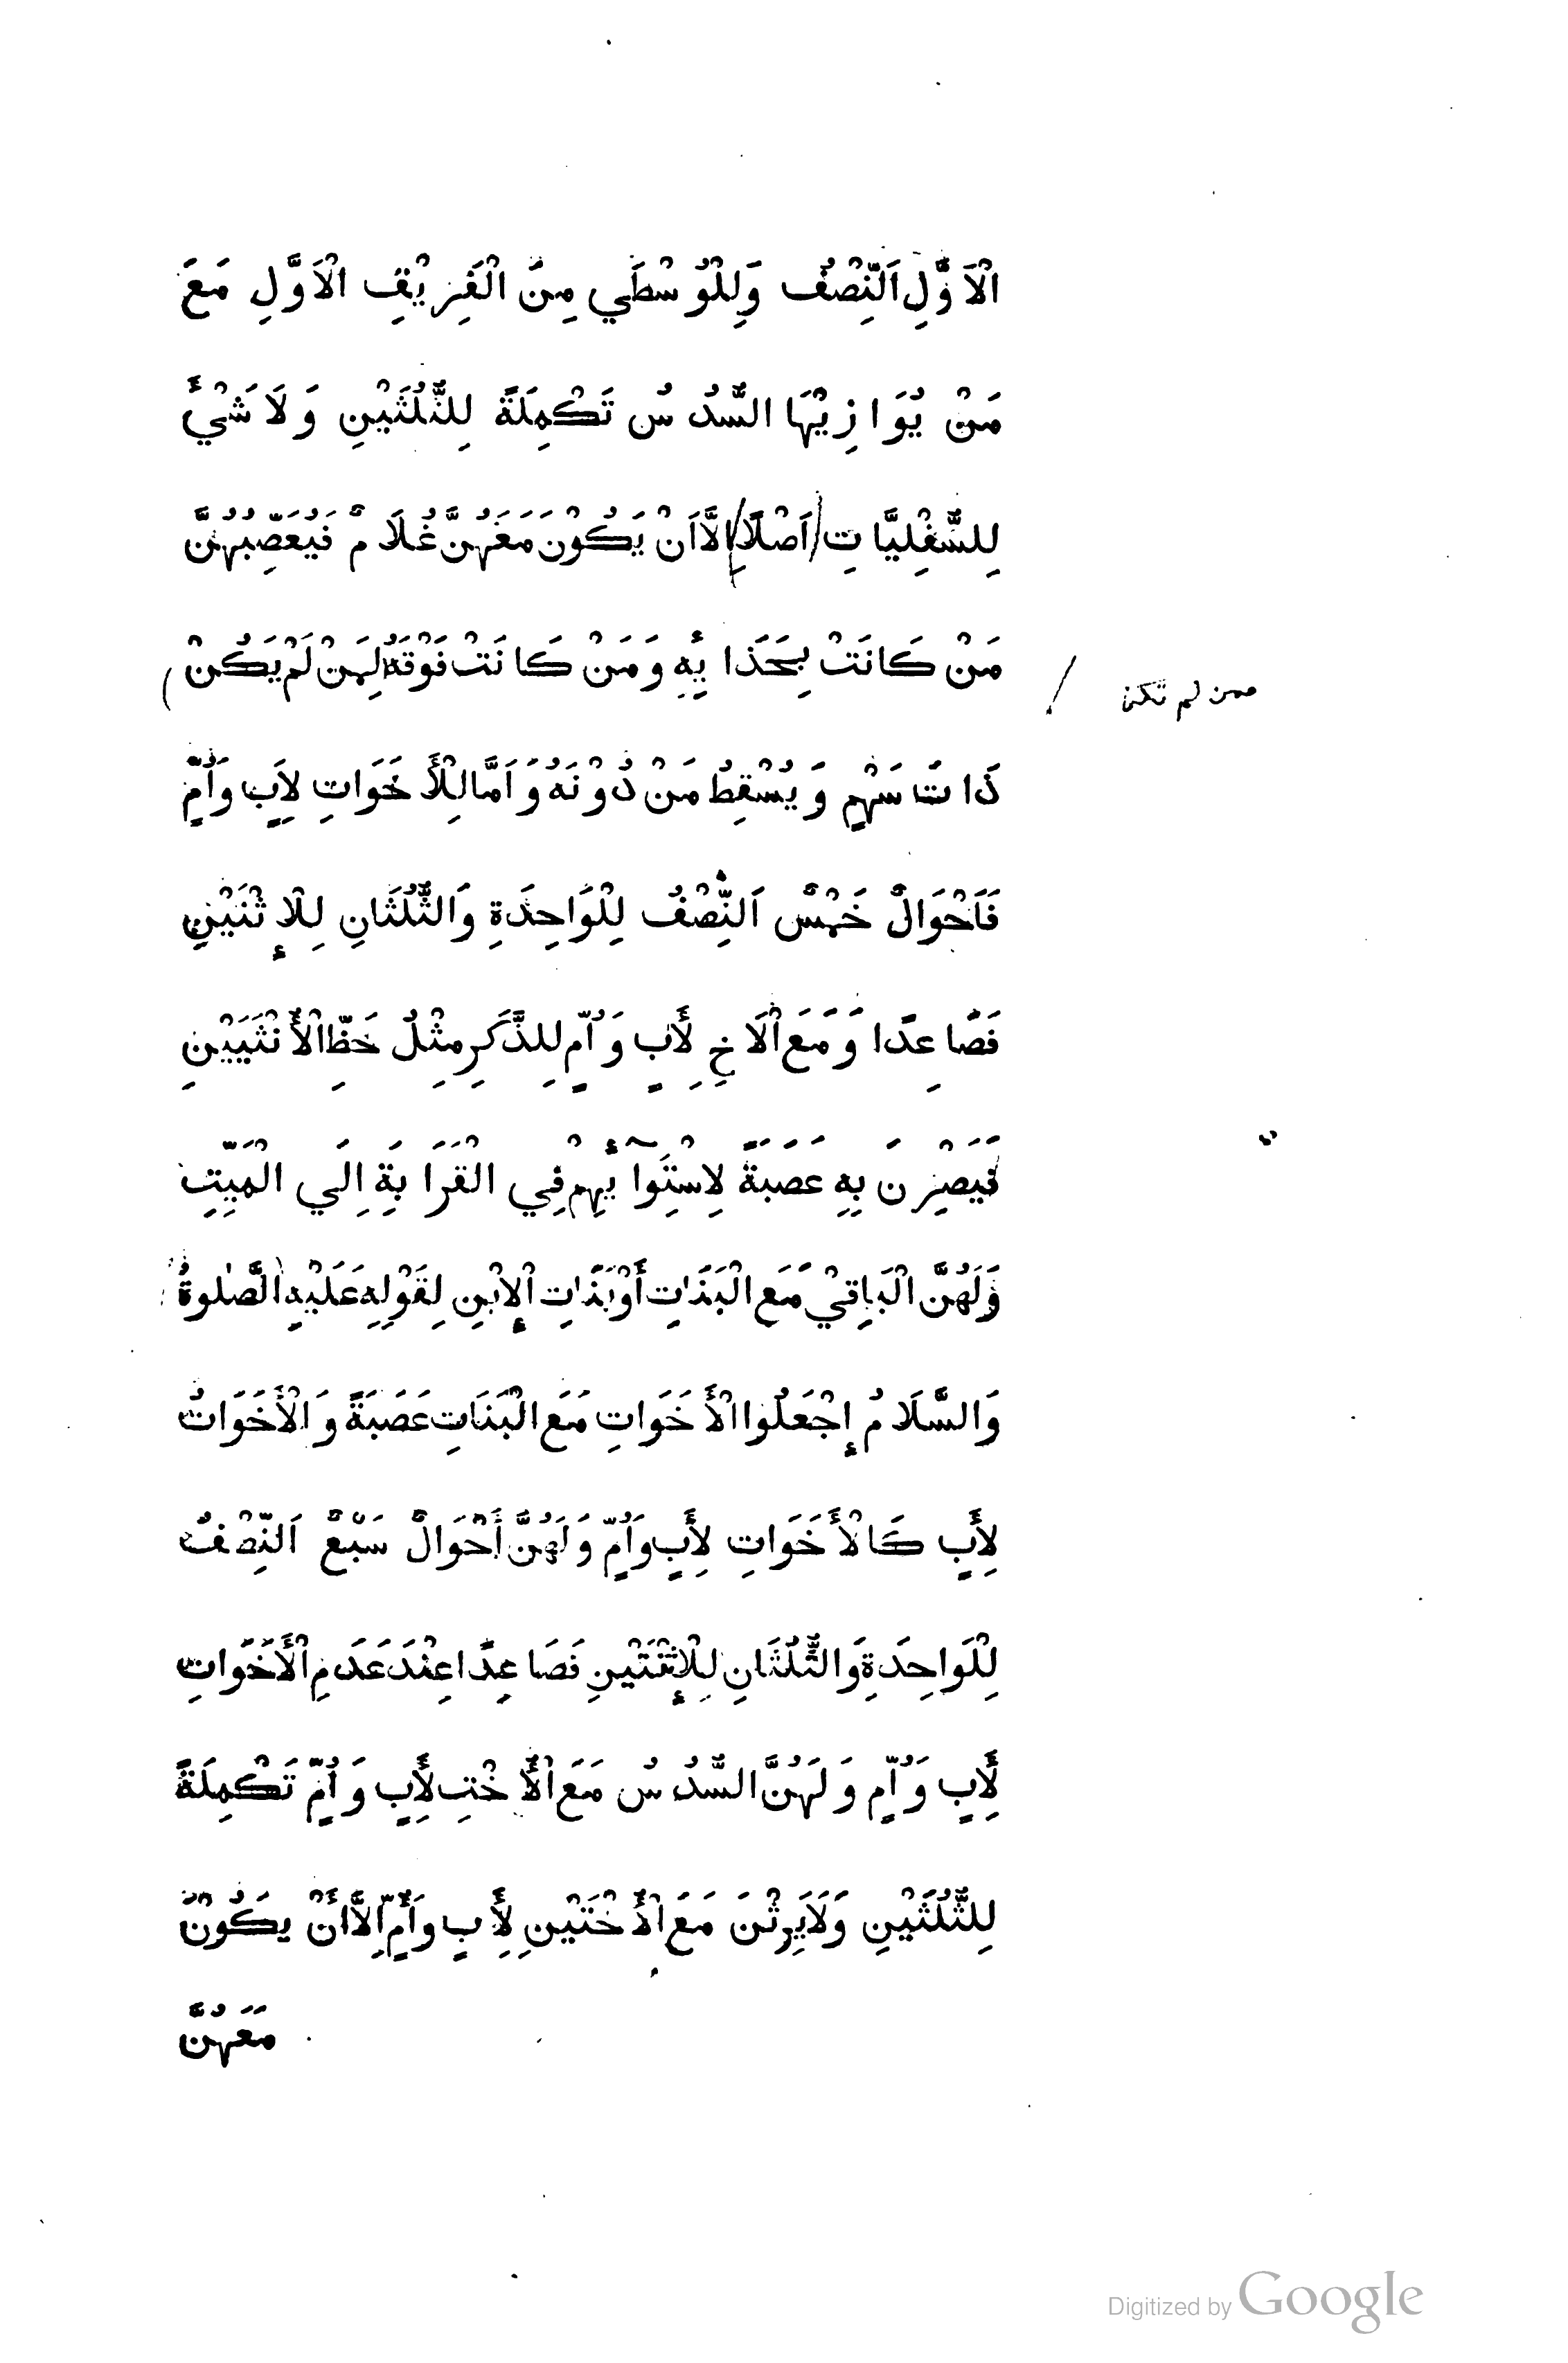 الْاَوَّلِ اَلنِّصْفُ وَلِلْوُسْطَي مِنَ الْفَرِيْقِ الْاَوَّلِ مَعَ
مَنْ يُوَازِيْهَا السُّدُسُ تَكْمِلَةً لِلثُّلُثَيْنِ وَلَا شَيْءَ
لِلسُّفْلِيَّاتِ اَصْلًا اِلَّا اَنْ يَكُوْنَ مَعَهُنَّ غُلَامٌ فَيُعَصِّبُهُنَّ
مَنْ كَانَتْ بِحَذَائِهِ وَمَنْ كَانَتْ فَوْقَهُ لِمَنْ لَمْ يَكُنْ
ممن لم تكن
ذَاتَ سَهْمٍ وَيُسْقِطُ مَنْ دُوْنَهُ وَاَمَّا لِلْأَخَوَاتِ لِاَبٍ وَاُمٍّ
فَاَحْوَالٌ خَمْسٌ اَلنِّصْفُ لِلْوَاحِدَةِ وَالثُّلُثَانِ لِلْإِثْنَيْنِ
فَصَاعِدًا وَمَعَ الْاَخِ لِأَبٍ وَاُمٍّ لِلذَّكَرِ مِثْلُ حَظِّ الْأُنْثَيَيْنِ
فَيَصِرْنَ بِهِ عَصَبَةً لِاسْتِوَآئِهِمْ فِي الْقَرَابَةِ اِلَي الْمَيِّتِ
وَلَهُنَّ الْبَاقِيْ مَعَ الْبَنَاتِ أَوْ بَنَاتِ الْإِبْنِ لِقَوْلِهِ عَلَيْهِ الصَّلٰوةُ
وَالسَّلَامُ إِجْعَلُوا الْأَخَوَاتِ مَعَ الْبَنَاتِ عَصَبَةً وَالْأَخَوَاتُ
لِأَبٍ كَالْأَخَوَاتِ لِأَبٍ وَاُمٍّ وَلَهُنَّ أَحْوَالٌ سَبْعٌ اَلنِّصْفُ
لِلْوَاحِدَةِ وَالثُّلُثَانِ لِلْإِثْنَتَيْنِ فَصَاعِدًا عِنْدَ عَدَمِ الْأَخَوَاتِ
لِأَبٍ وَاُمٍّ وَلَهُنَّ السُّدُسُ مَعَ الْأُخْتِ لِأَبٍ وَاُمٍّ تَكْمِلَةً
لِلثُّلُثَيْنِ وَلَا يَرِثْنَ مَعَ الْأُخْتَيْنِ لِأَبٍ وَأُمٍّ اِلَّا أَنْ يَكُوْنَ
مَعَهُنَّ
Digitized by Google